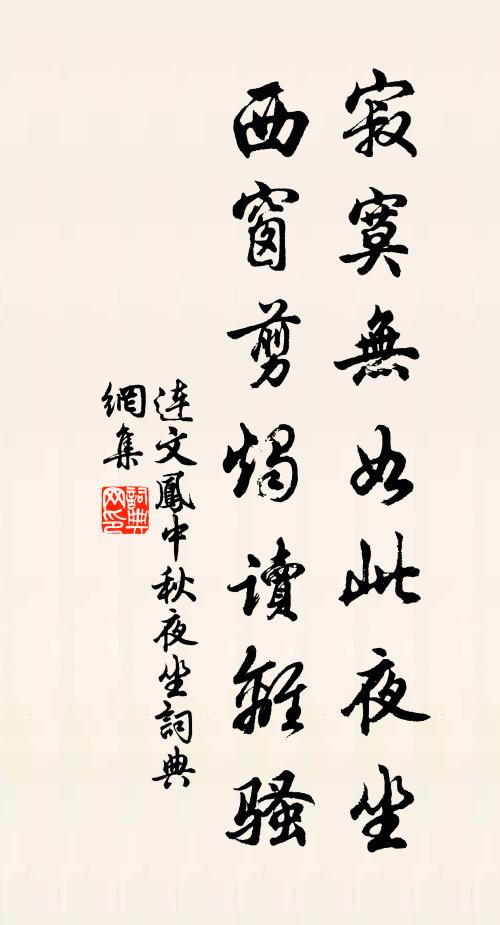 寂寞無如此夜坐
西窗剪燭讀離騷
連文鳳中秋夜坐詞典
網集
詞典
网印